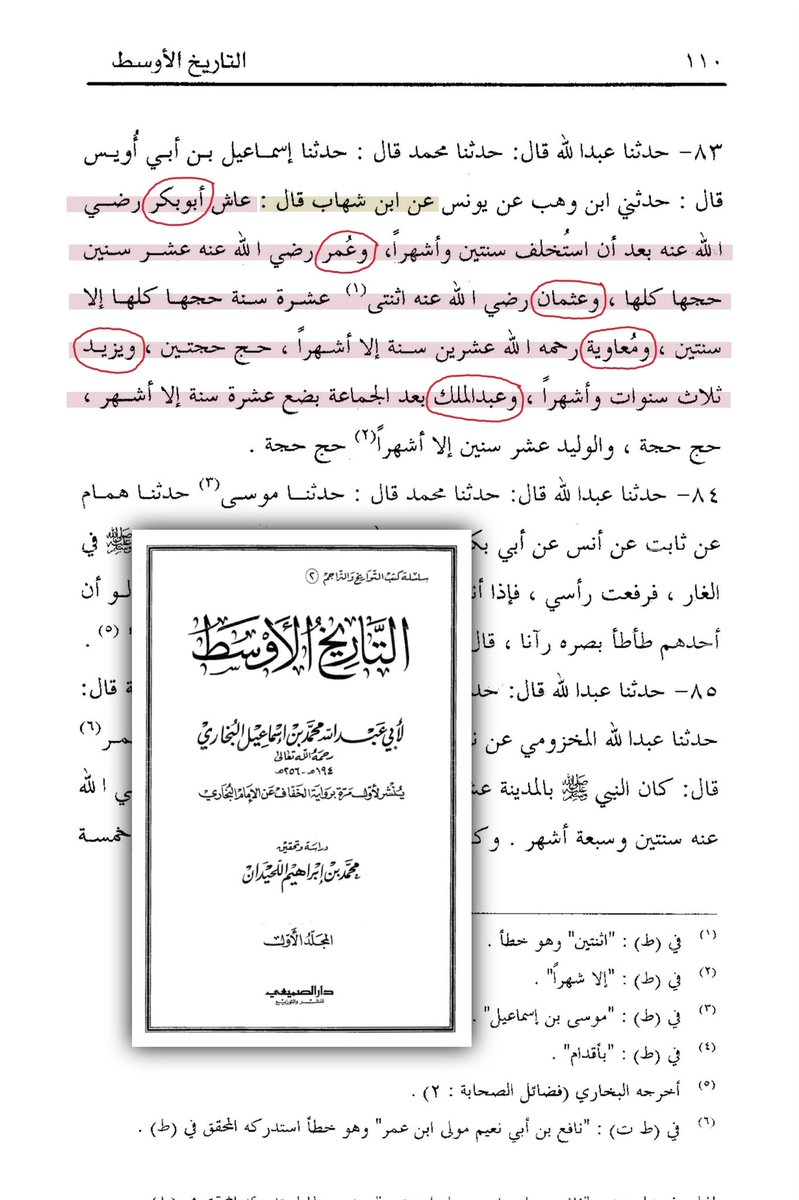 ١١٠
التاريخ الأوسط
٨٣- حدثنا عبدالله قال: حدثنا محمد قال : حدثنا إسماعيل بن أبي أُويس
قال : حدثني ابن وهب عن يونس عن ابن شهاب قال : عاش أبوبكر رضي
الله عنه بعد أن استُخلف سنتين وأشهراً، وعُمر رضي الله عنه عشر سنين
حجها كلها ، وعثمان رضي الله عنه اثنتى(١) عشرة سنة حجها كلها إلا
سنتين ، ومُعاوية رحمه الله عشرين سنة إلا أشهراً ، حج حجتين ، ويزيد
ثلاث سنوات وأشهراً ، وعبدالملك بعد الجماعة بضع عشرة سنة إلا أشهر ،
حج حجة ، والوليد عشر سنين إلا أشهراً(٢) حج حجة .
٨٤- حدثنا عبدالله قال: حدثنا محمد قال : حدثنا موسى(٣) حدثنا همام
عن ثابت عن أنس عن أبي ﷺ في
الغار ، فرفعت رأسي ، فإذا لو أن
أحدهم طأطأ بصره رآنا ، قال (٥) .
٨٥- حدثنا عبدالله قال: قال:
حدثنا عبدالله المخزومي عن (٦)
قال: كان النبي ﷺ بالمدينة الله
عنه سنتين وسبعة أشهر . خمسة
سلسلة كتب التواريخ والتراجم (٢)
التاريخ الأوسط
لأبي عبد الله محمد بن إسماعيل البخاري
رحمه الله تعالى
١٩٤هـ-٢٥٦هـ
ينشر لأول مرة برواية الخفاف عن الإمام البخاري
دراسة وتحقيق
محمد بن إبراهيم اللحيدان
المجلد الأول
دار الصميعي
للنشر والتوزيع
(١) في (ط) : "اثنتين" وهو خطأ .
(٢) في (ط) : "إلا شهراً" .
(٣) في (ط) : "موسى بن إسماعيل" .
(٤) في (ط) : "بأقدام" .
(٥) أخرجه البخاري (فضائل الصحابة : ٢) .
(٦) في (ط ت) : "نافع بن أبي نعيم مولى ابن عمر" وهو خطأ استدركه المحقق في (ط) .